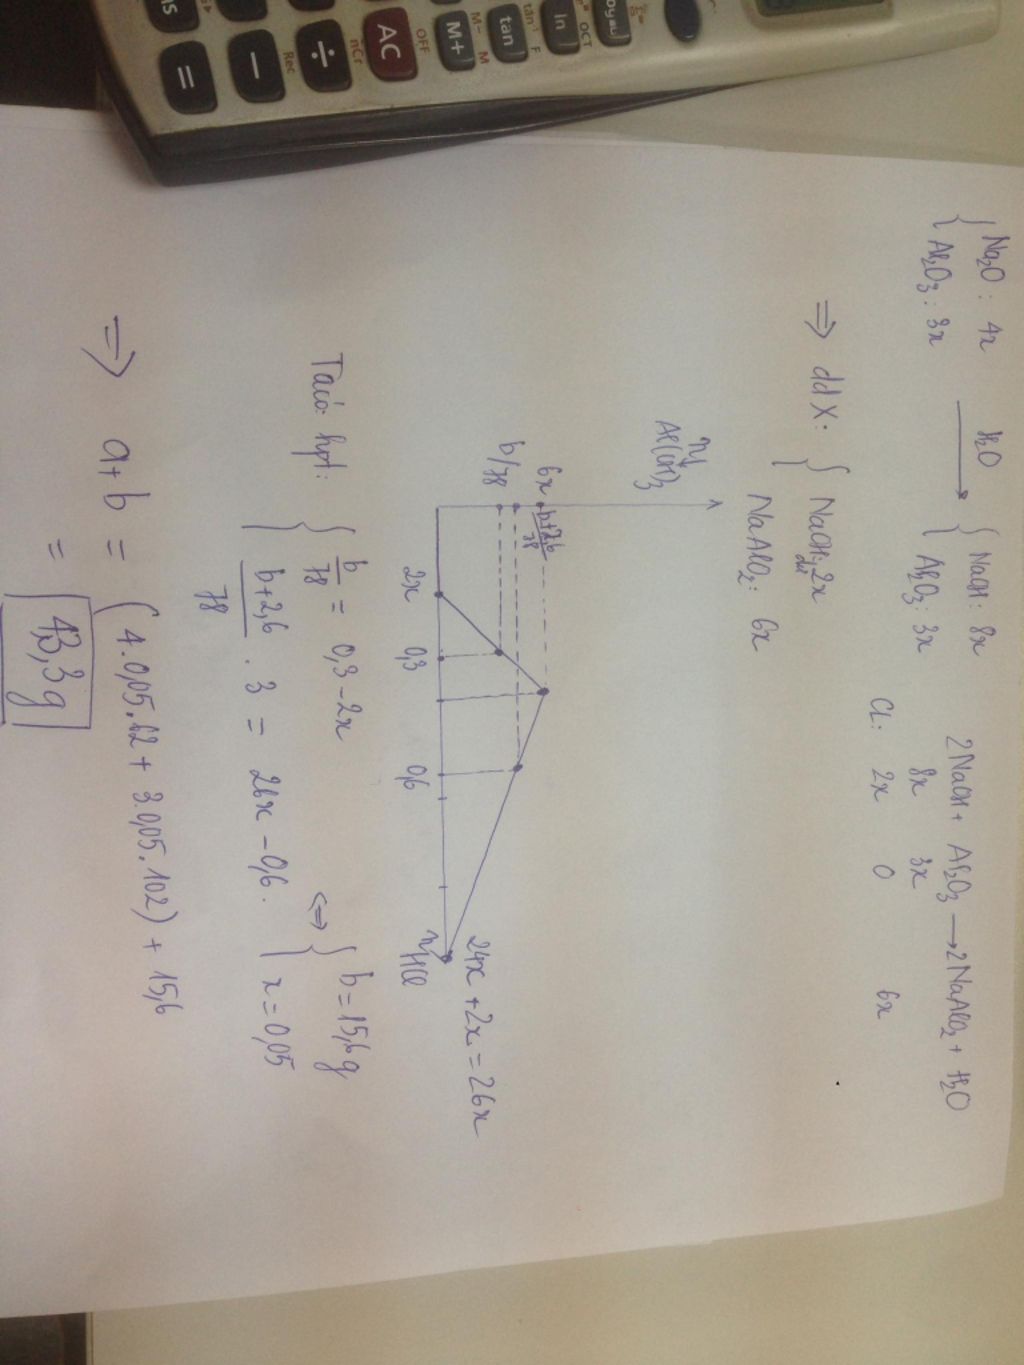 { Na₂O : 4x
Al₂O₃ : 3x
H₂O
⟶
{ NaOH : 8x
Al₂O₃ : 3x
2NaOH + Al₂O₃ ⟶ 2NaAlO₂ + H₂O
8x 3x
CL: 2x 0 6x
⇒ dd X: { NaOH dư 2x
NaAlO₂ : 6x
n Al(OH)₃
6x
b+2,6/78
b/78
2x
0,3
0,6
nHCl
24x + 2x = 26x
Ta có hpt: { b/78 = 0,3 - 2x
b+2,6/78 . 3 = 26x - 0,6.
⇔ { b = 15,6g
x = 0,05
⇒ a + b = (4.0,05.62 + 3.0,05.102) + 15,6
= 43,3g
=
−
Rec
÷
nCr
AC
OFF
M+
M−
M
tan
tan⁻¹
F
ln
OCT